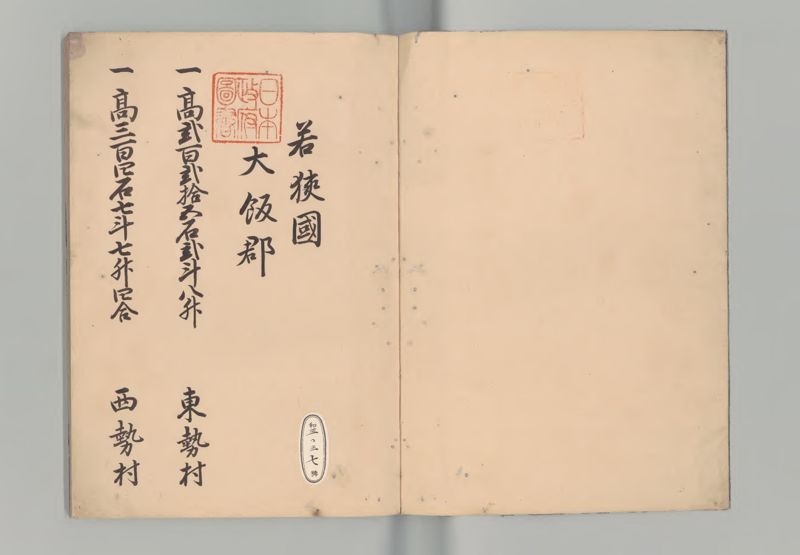 若狹國
大飯郡
日本
政府
圖書
一高弐百弐拾五石弐斗八升
東勢村
一高三百四石七斗七升四合
西勢村
七
號